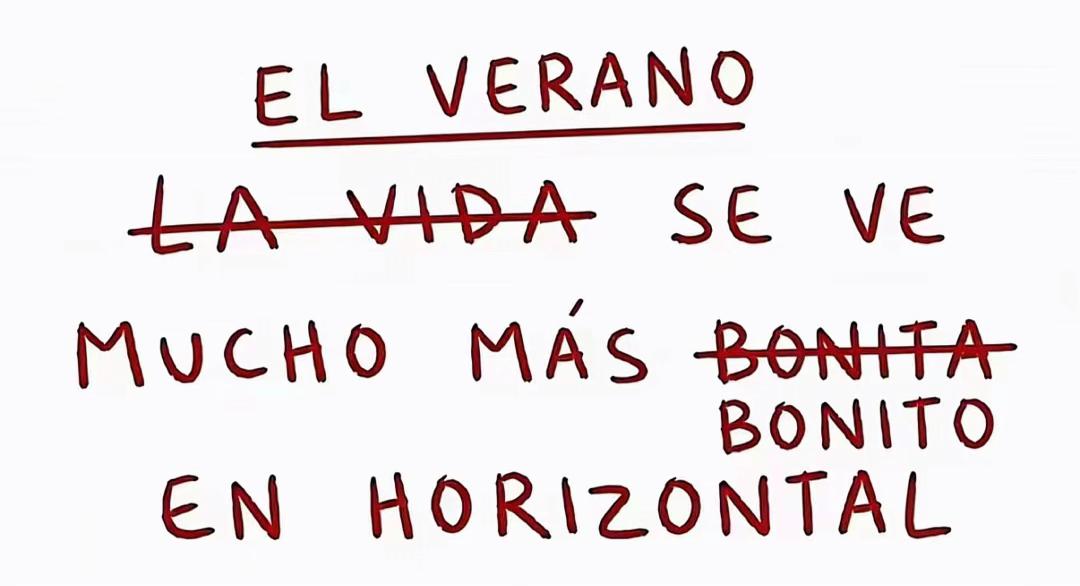 EL VERANO
LA VIDA SE VE
MUCHO MÁS BONITA
BONITO
EN HORIZONTAL